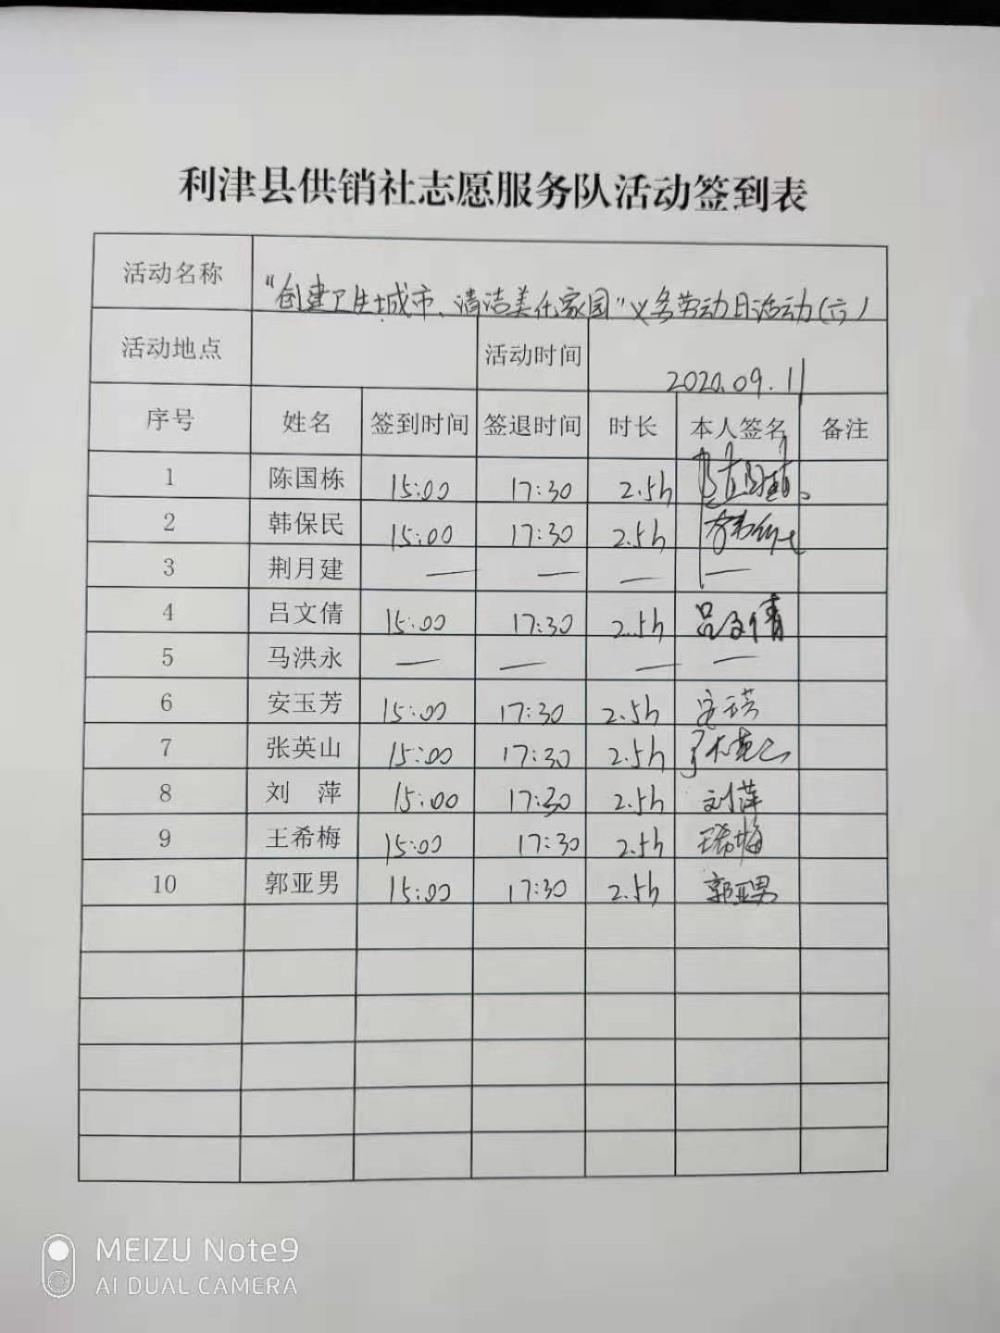 利津县供销社志愿服务队活动签到表
活动名称 "创建卫生城市、清洁美化家园"义务劳动日活动(六)
活动地点 活动时间 2020.09.11
序号 姓名 签到时间 签退时间 时长 本人签名 备注
1 陈国栋 15:00 17:30 2.5h 陈国栋
2 韩保民 15:00 17:30 2.5h
3 荆月建 — — — —
4 吕文倩 15:00 17:30 2.5h 吕文倩
5 马洪永 — — — —
6 安玉芳 15:00 17:30 2.5h
7 张英山 15:00 17:30 2.5h
8 刘 萍 15:00 17:30 2.5h 刘萍
9 王希梅 15:00 17:30 2.5h 王希梅
10 郭亚男 15:00 17:30 2.5h 郭亚男
MEIZU Note9
AI DUAL CAMERA